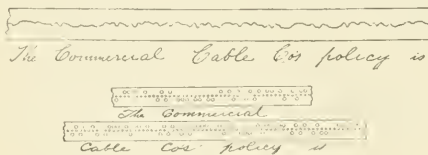 The Commercial Cable Co's policy is
The Commercial
Cable Co's policy is